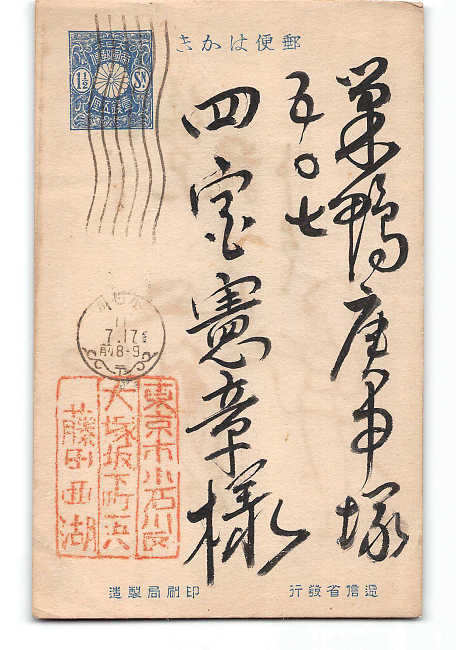 郵便はかき
巣鴨庚申塚
五〇七
四宮憲章様
1½ Sn
小石川
11
7.17
前8-9
東京市小石川区
大塚坂下町一五八
藤田西湖
逓信省発行
印刷局製造